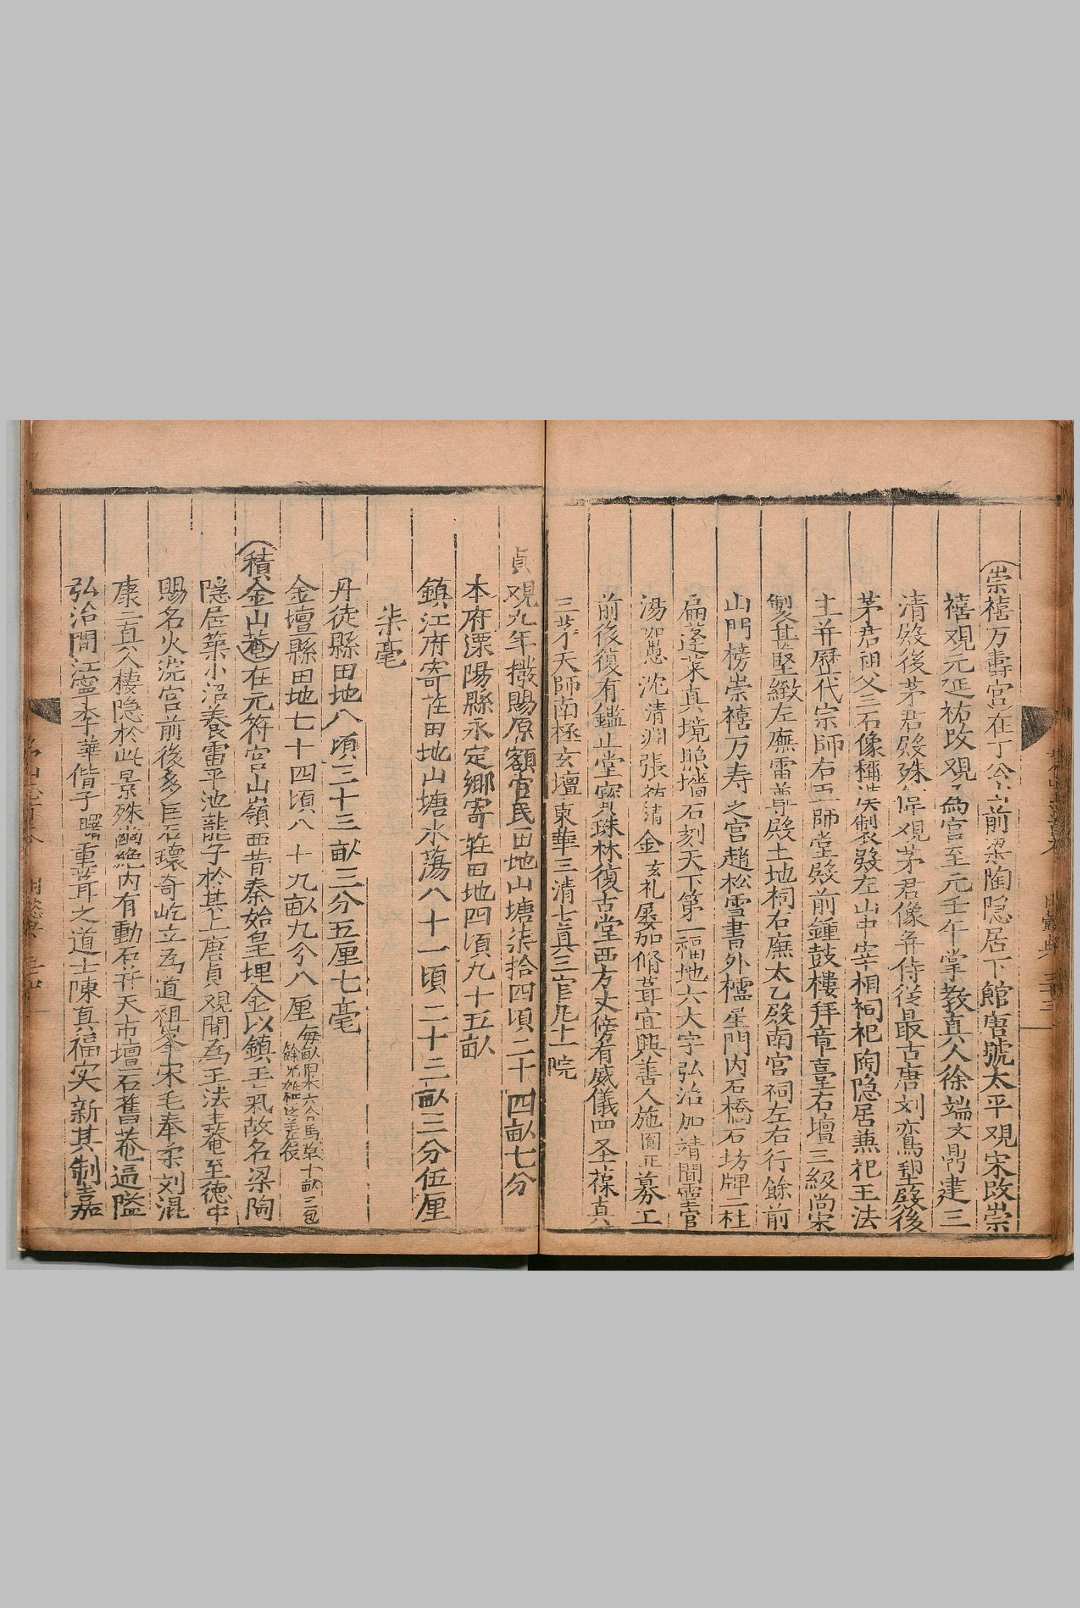 崇禧万壽宮在丁公山前梁陶隠居下館唐號太平觀宋改崇
禧觀元延祐改觀爲宮至元壬午掌教真人徐端文鼎建三
清殿後茅君殿殊偉觀茅君像并侍從最古唐刘鳶塑殿後
茅君祖父三石像稱漢製殿左山中宰相祠祀陶隠居兼祀王法
主并歷代宗師右玉師堂殿前鍾鼓樓拜章臺右壇三級尚宋
製甚堅緻左廡雷尊殿土地祠右廡太乙殿南宮祠左右行餘前
山門榜崇禧万寿之宮趙松雪書外櫺星門内石橋石坊牌二柱
扁蓬莱真境照墻石刻天下第一福地六大字弘治加靖間靈官
湯加愚沈清淵張祐清金玄礼屡加脩葺宜興善人施圓正募工
前後復有鑑止堂寳珠林復古堂西方丈傍有威儀四圣葆真
三茅天師南極玄壇東華三清七真三官九十一院
貞观九年撥賜原額官民田地山塘柒拾四頃二十四畝七分
本府溧陽縣永定鄉寄粧田地四頃九十五畝
鎮江府寄莊田地山塘水蕩八十一頃二十二畝三分伍厘
柒毫
丹徒縣田地八頃三十三畝二分五厘七毫
金壇縣田地七十四頃八十九畝九分八厘
積金山菴在元符宮山嶺西昔秦始皇埋金以鎮王氣故名梁陶
隠居築小沼養雷平池龍子於其上唐貞观間爲王法主菴至徳中
賜名火浣宮前後多巨石瓌奇屹立為道祖峯宋毛奉柔刘混
康二真人棲隠於此景殊幽絶内有動石并天市壇石舊菴逼隘
弘治間江寧李華偕子曙重葺之道士陳真福实新其制嘉